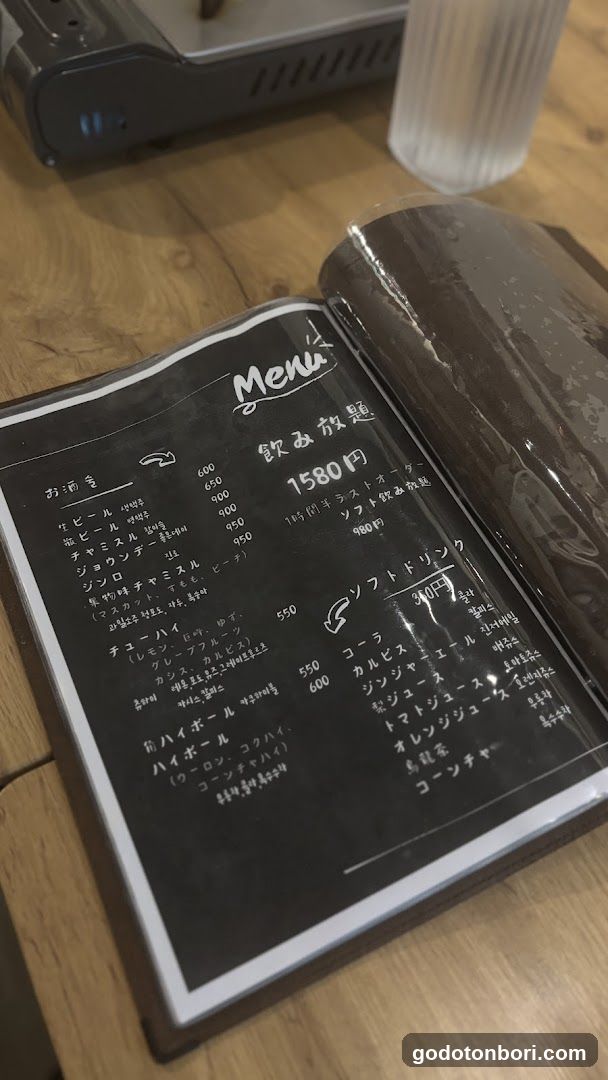 Menu
飲み放題
1580円
1時間半ラストオーダー
ソフト飲み放題
980円
お酒
生ビール 생맥주 600
瓶ビール 병맥주 650
チャミスル 참이슬 900
ジョウンデー 좋은데이 900
ジンロ 진로 950
果物味チャミスル 950
(マスカット、すもも、ピーチ)
과일소주 청포도, 자두, 복숭아
チューハイ 550
(レモン、巨峰、ゆず、
グレープフルーツ
カシス、カルピス)
츄하이 레몬,포도,유즈,그레이프후르츠
카시스,칼피스
角ハイボール 가쿠하이볼 550
ハイボール 600
(ウーロン、コクハイ、
コーンチャハイ)
우롱차,콜라,옥수수차
ソフトドリンク
350円
コーラ 콜라
カルピス 칼피스
ジンジャーエール 진저에일
梨ジュース 배쥬스
トマトジュース 토마토쥬스
オレンジジュース 오렌지쥬스
烏龍茶 우롱차
コーンチャ 옥수수차
godotonbori.com